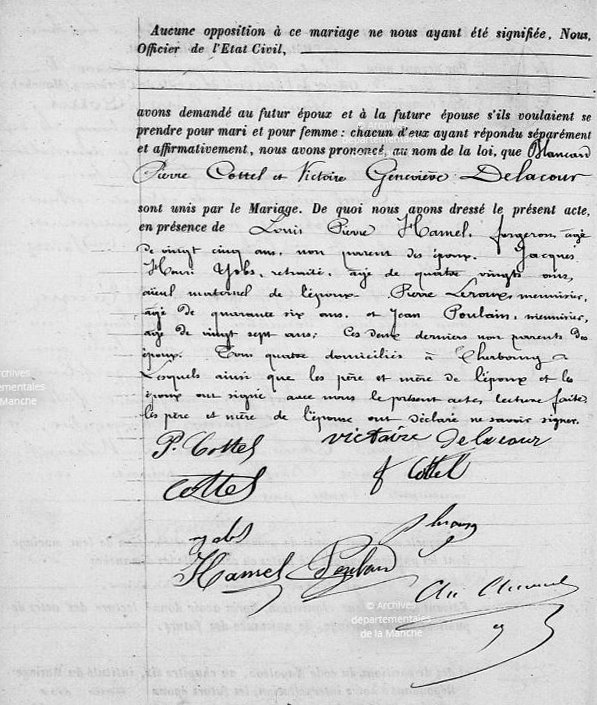 Aucune opposition à ce mariage ne nous ayant été signifiée, Nous,
Officier de l'Etat Civil,
avons demandé au futur époux et à la future épouse s'ils voulaient se
prendre pour mari et pour femme : chacun d'eux ayant répondu séparément
et affirmativement, nous avons prononcé, au nom de la loi, que
Pierre Cottel et Victoire Geneviève Delacour
sont unis par le Mariage. De quoi nous avons dressé le présent acte,
en présence de Louis Pierre Hamel, forgeron, âgé
de vingt cinq ans, non parent des époux. Jacques
Henri retraité, âgé de quatre vingts ans,
aïeul maternel de l'époux. Pierre Leroux, menuisier,
âgé de quarante six ans, et Jean Poulain, menuisier,
âgé de vingt sept ans; Ces deux derniers non parents des
époux. Tous quatre domiciliés à Cherbourg
Lesquels ainsi que les père et mère de l'époux et les
époux ont signé avec nous le présent acte, lecture faite,
les père et mère de l'épouse ont déclaré ne savoir signer.
P. Cottel victoire delacour
Cottel
Cottel
Hamel Poulain
© Archives
départementales
de la Manche
Archives
départementales
de la Manche